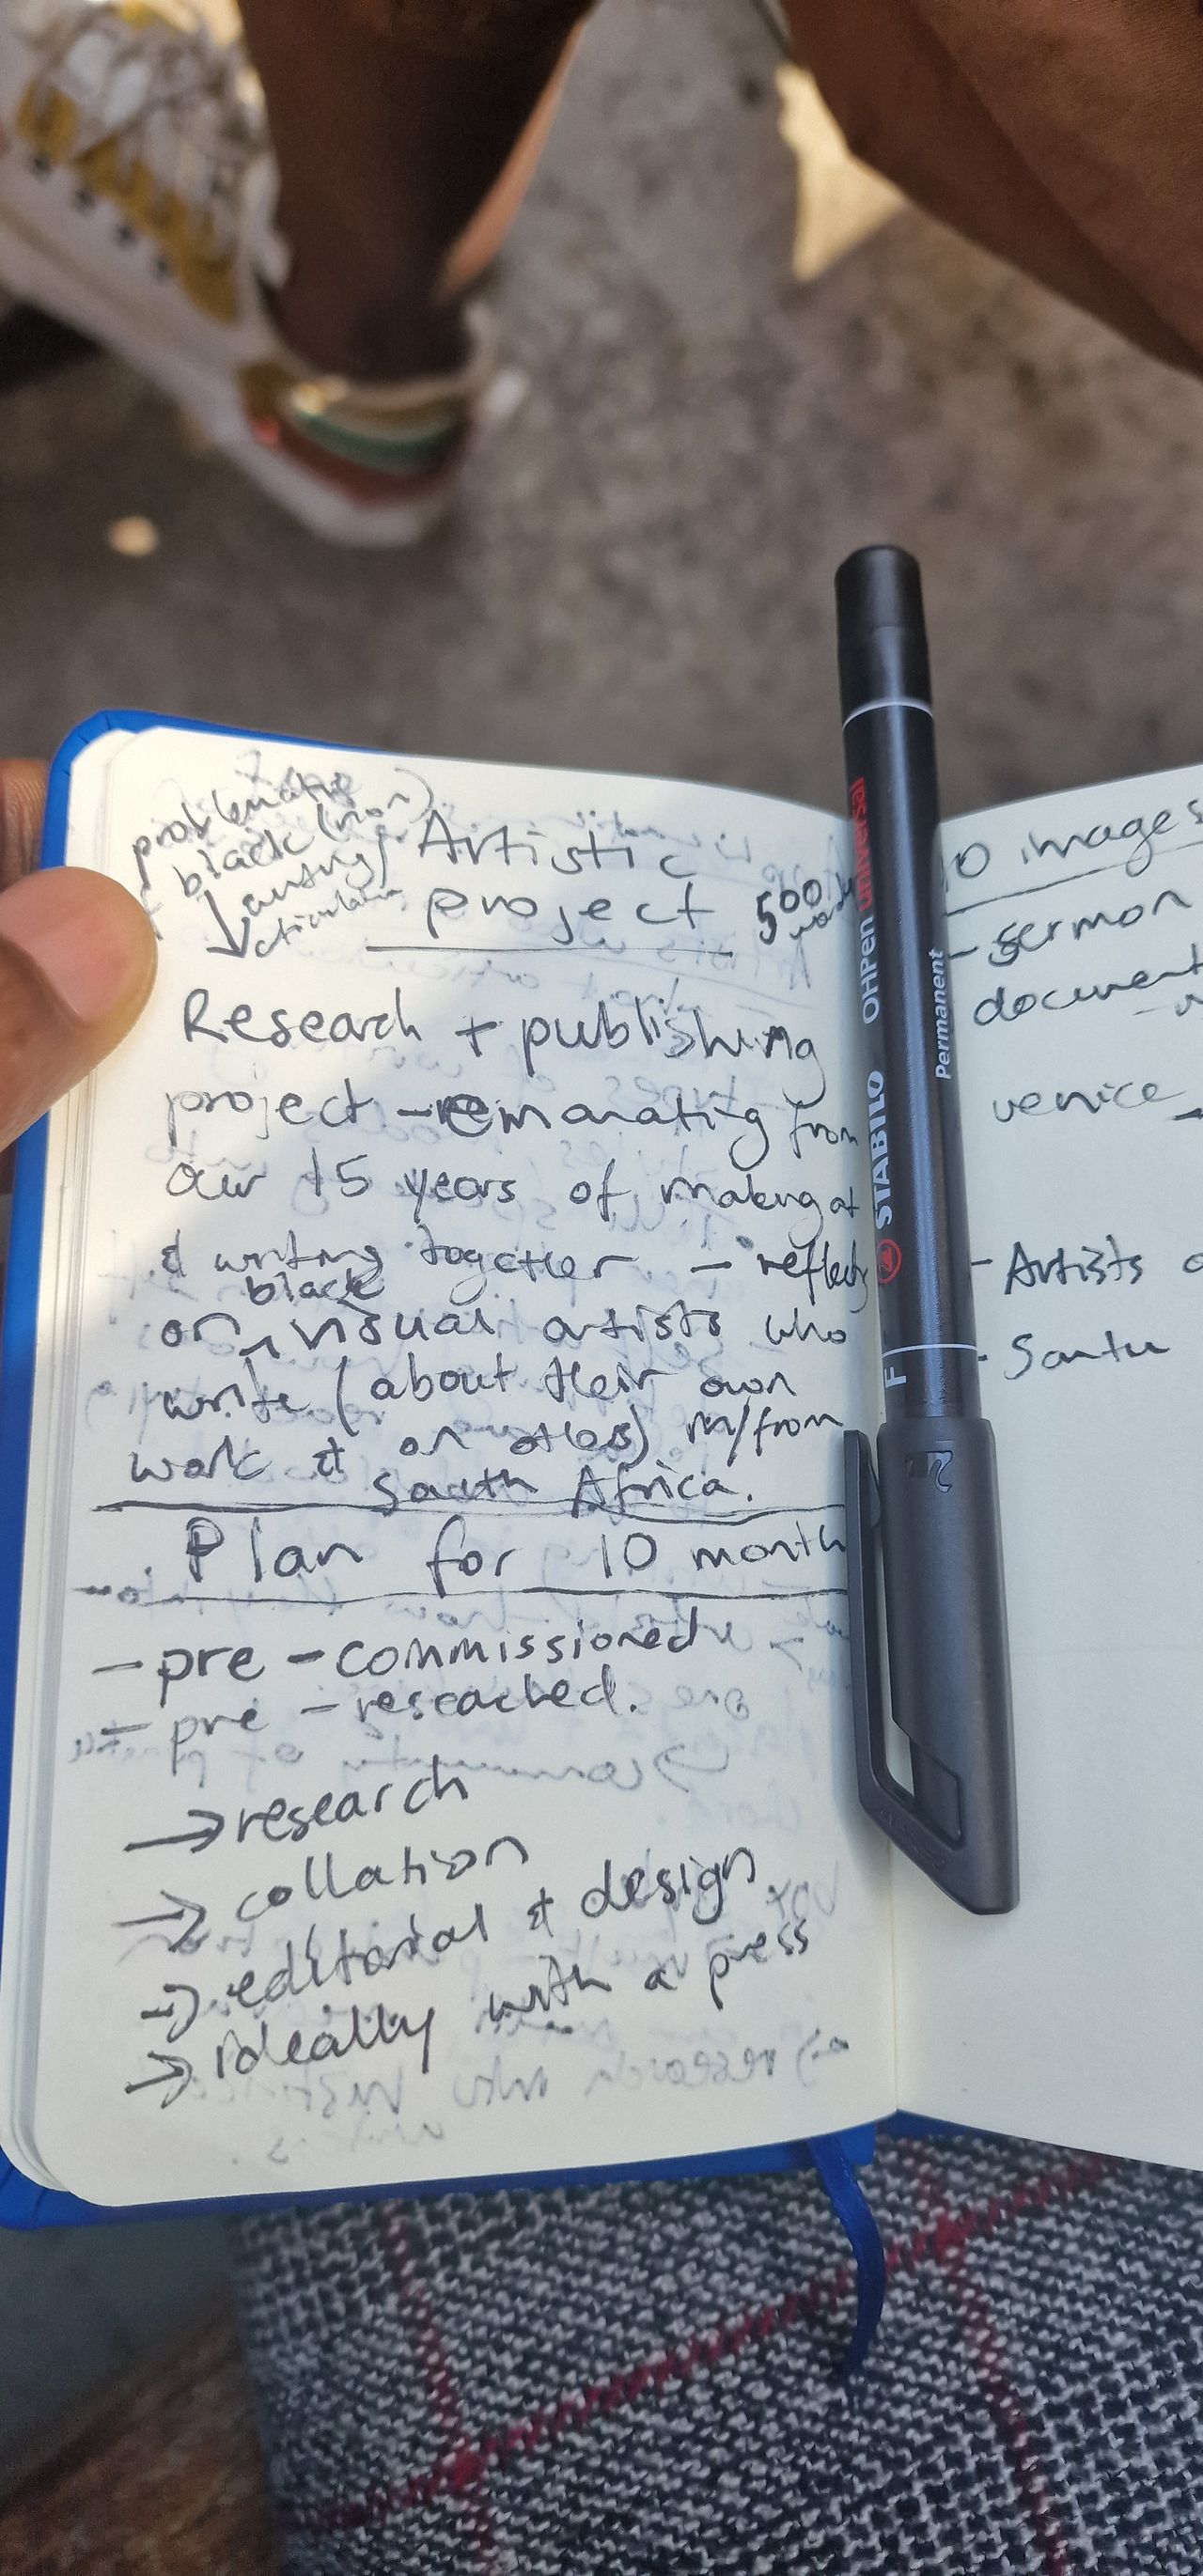 problematic
black (non)
writing/
Artistic
project
500
words
Research + publishing
project - emanating from
our 15 years of making art
& writing together - reflecting
black
on visual artists who
write (about their own
work & on others) in/from
South Africa.
Plan for 10 month
- pre-commissioned
- pre-reseached.
→ research
→ collation
→ editorial & design
→ ideally with a press
10 images
- sermon
document
venice
- Artists
- Santu
STABILO OHPen universal
Permanent
F